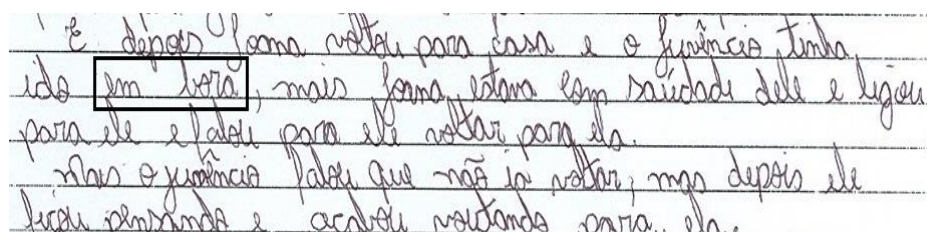 E depois Joana voltou para casa e o Juvêncio tinha
ido em bora, mais Joana estava com saúdade dele e ligou
para ele e falou para ele voltar para ela.
Mais o juvêncio falou que não ia voltar, mas depois ele
ficou pensando e acabou voltando para ela.